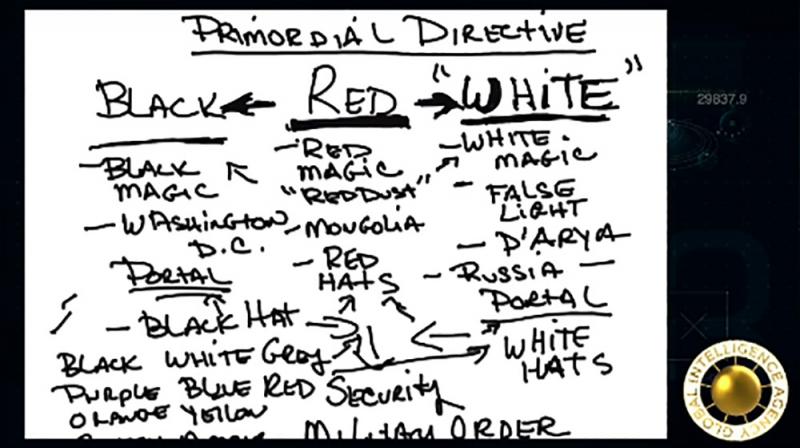 PRIMORDIAL DIRECTIVE
BLACK ← RED → "WHITE"
- BLACK MAGIC
- WASHINGTON D.C.
PORTAL
- BLACK HAT
BLACK WHITE GREY
PURPLE BLUE RED
ORANGE YELLOW
- RED MAGIC
"RED DUST"
- MONGOLIA
- RED HATS
SECURITY
MILITARY ORDER
- WHITE MAGIC
- FALSE LIGHT
- D'ARYA
- RUSSIA -
PORTAL
WHITE HATS
29837.9
GLOBAL INTELLIGENCE AGENCY